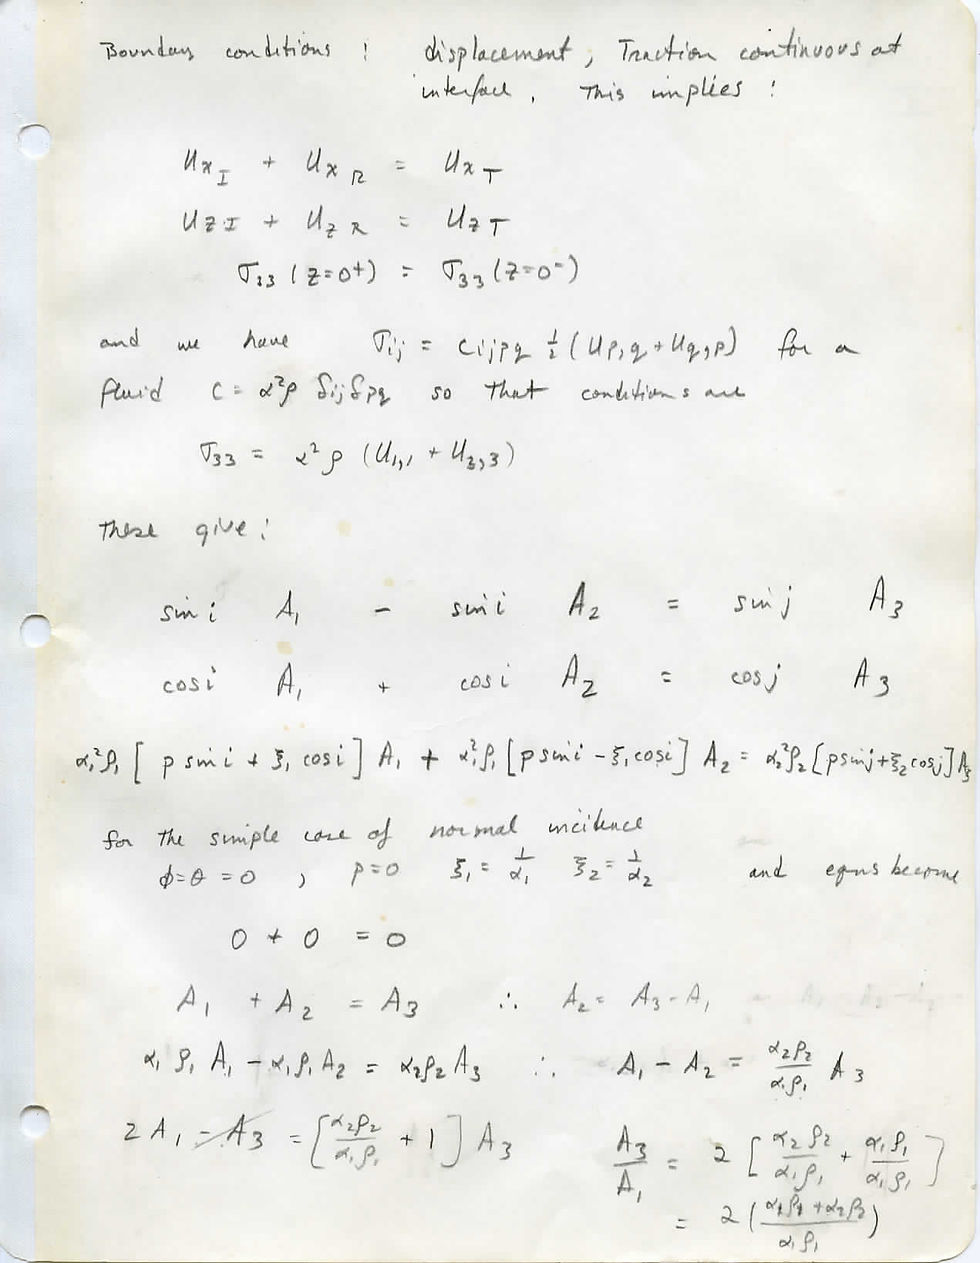 Boundary conditions : displacement, Traction continuous at
interface. This implies :
u_{x_I} + u_{x_R} = u_{x_T}
u_{z_I} + u_{z_R} = u_{z_T}
σ_{33} (z=0⁺) = σ_{33} (z=0⁻)
and we have σ_{ij} = c_{ijpq} ½ (u_{p,q} + u_{q,p}) for a
fluid c = α²ρ δ_{ij} δ_{pq} so that conditions are
σ_{33} = α² ρ (u_{1,1} + u_{3,3})
these give :
sin i A₁ − sin i A₂ = sin j A₃
cos i A₁ + cos i A₂ = cos j A₃
α₁²ρ₁ [ p sin i + ξ₁ cos i ] A₁ + α₁²ρ₁ [ p sin i − ξ₁ cos i ] A₂ = α₂²ρ₂ [ p sin j + ξ₂ cos j ] A₃
for the simple case of normal incidence
φ = θ = 0 , p = 0 ξ₁ = 1/α₁ ξ₂ = 1/α₂ and eqns become
0 + 0 = 0
A₁ + A₂ = A₃ ∴ A₂ = A₃ − A₁
α₁ρ₁ A₁ − α₁ρ₁ A₂ = α₂ρ₂ A₃ ∴ A₁ − A₂ = α₂ρ₂/α₁ρ₁ A₃
2A₁ − A₃ = [ α₂ρ₂/α₁ρ₁ + 1 ] A₃ A₃/A₁ = 2 [ α₂ρ₂/α₁ρ₁ + α₁ρ₁/α₁ρ₁ ]
= 2 ( (α₁ρ₁ + α₂ρ₂)/α₁ρ₁ )